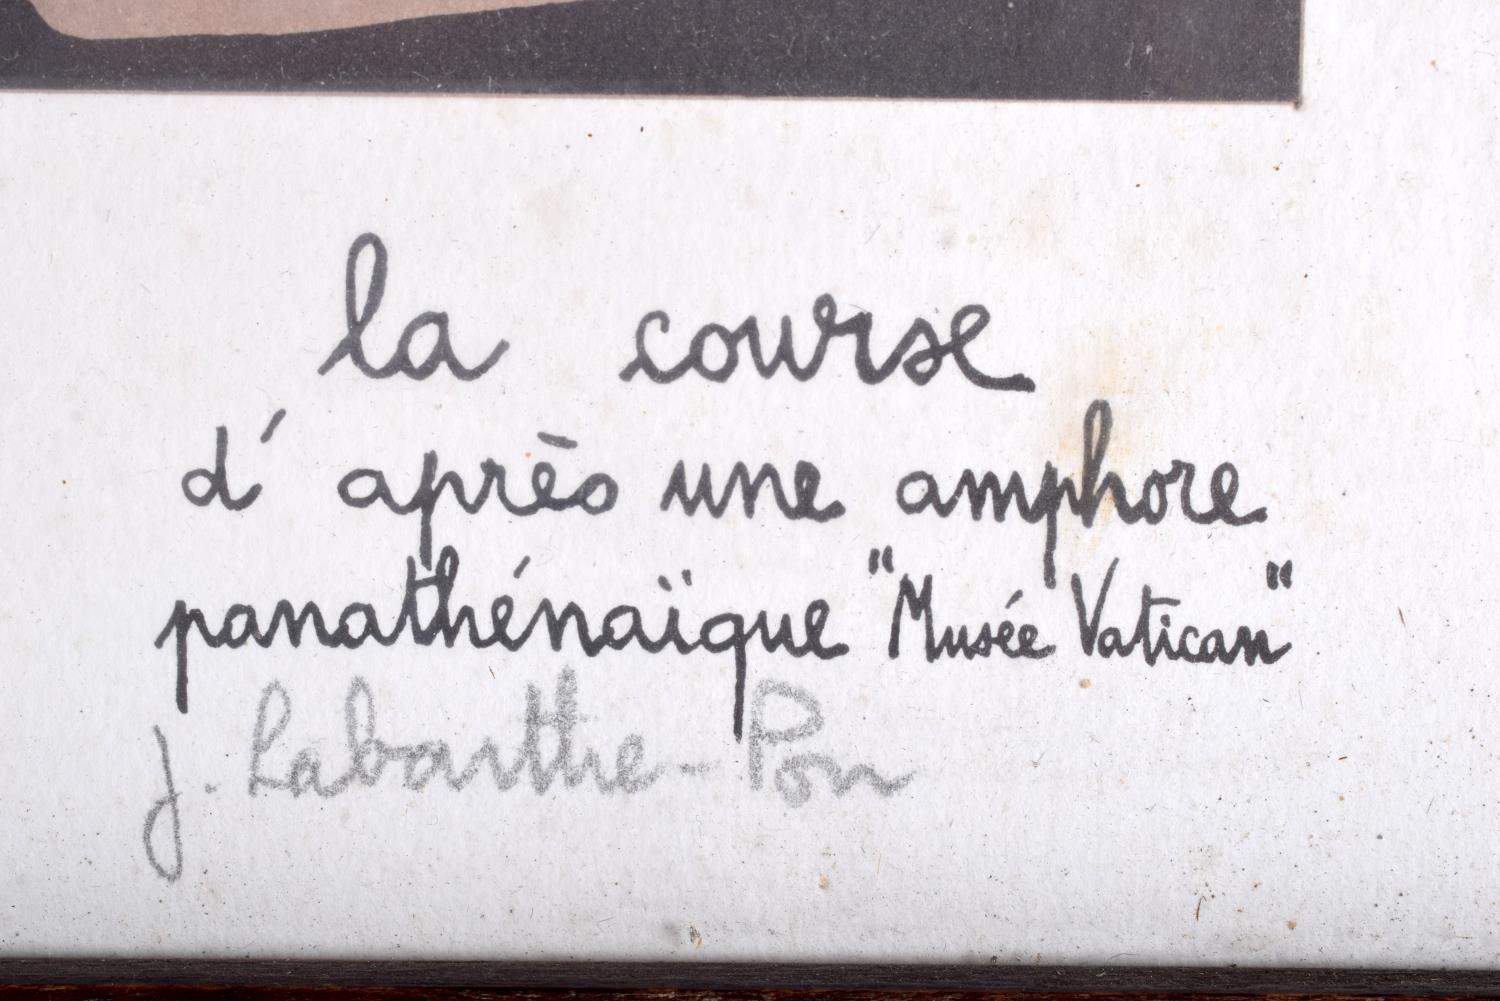 la course
d'après une amphore
panathénaïque "Musée Vatican"
J. Labarthe-Pon